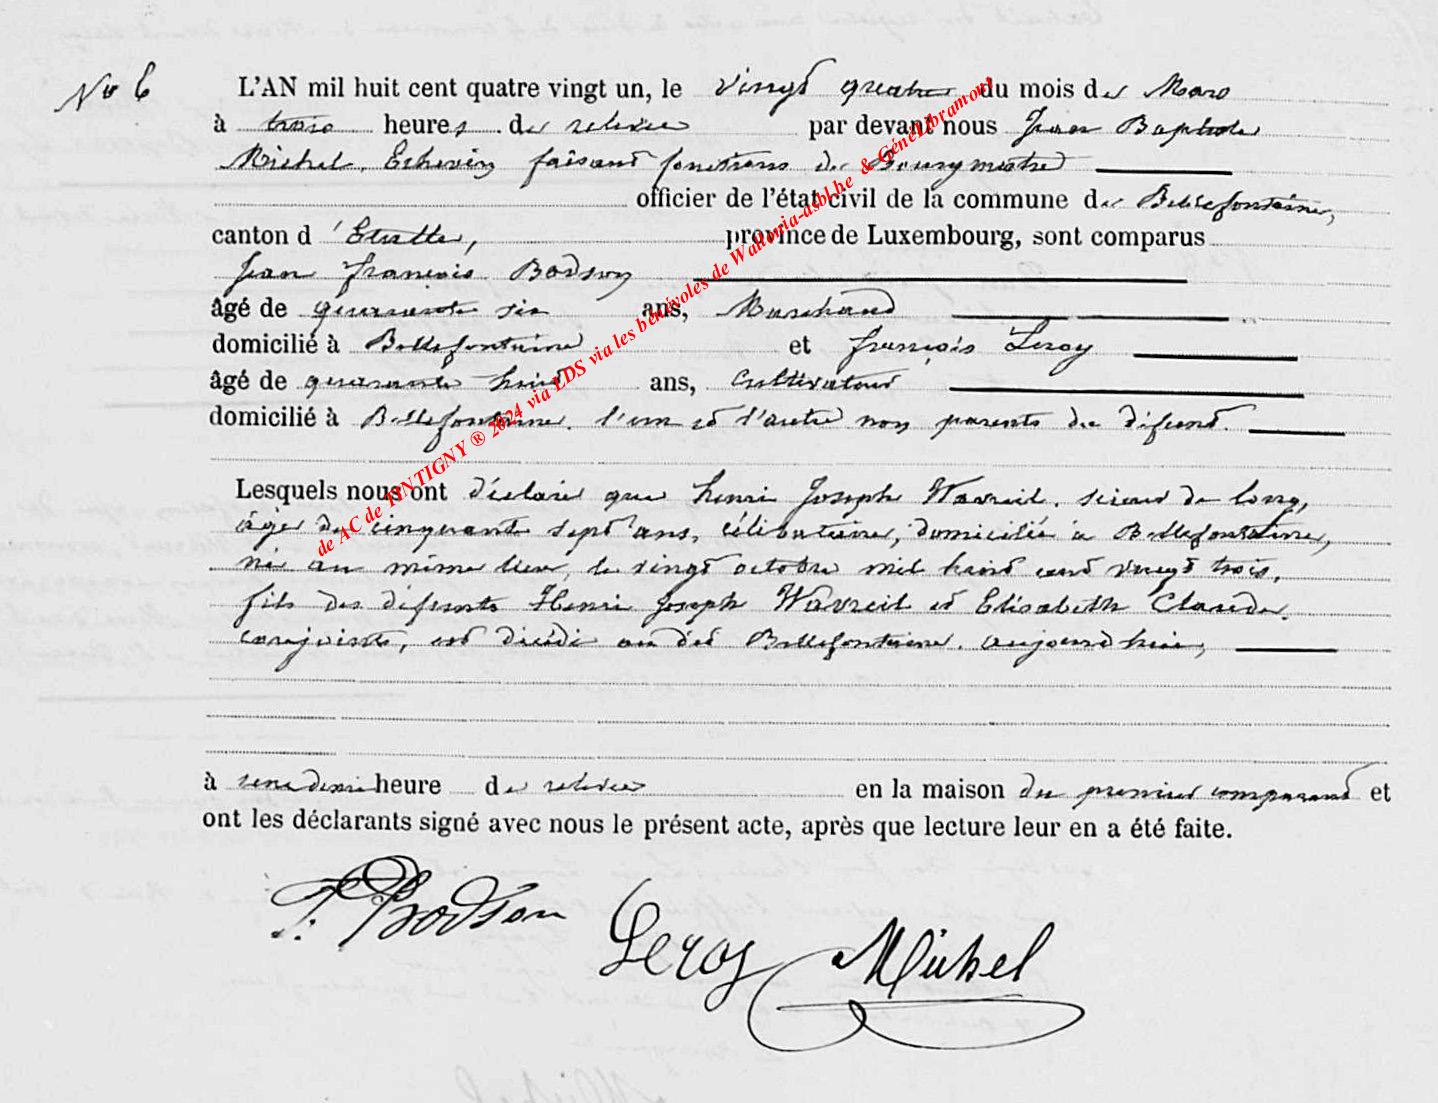 No 6
L'AN mil huit cent quatre vingt un, le vingt quatre du mois de Mars
à trois heures de relevée par devant nous Jean Baptiste
Michel, Echevin faisant fonctions de Bourgmestre
officier de l'état civil de la commune de Bellefontaine,
canton d'Etalle, province de Luxembourg, sont comparus
Jean François Bodson
âgé de quarante six ans, Marchand
domicilié à Bellefontaine et François Leroy
âgé de quarante huit ans, Cultivateur
domicilié à Bellefontaine. l'un et l'autre non parents du défunt.
Lesquels nous ont déclaré que henri Joseph Wavreil, scieur de long,
âgé de cinquante sept ans, célibataire, domicilié à Bellefontaine,
né au même lieu, le vingt octobre mil huit cent vingt trois,
fils des défunts Henri Joseph Wavreil et Elisabeth Claude,
conjoints, est décédé au dit Bellefontaine. aujourd'hui,
à une demi heure de relevée en la maison du premier comparant et
ont les déclarants signé avec nous le présent acte, après que lecture leur en a été faite.
Bodson Leroy Michel
de AC de TINTIGNY ® 2024 via LDS via les bénévoles de Wallonia-asbl.be & GénéLibramont